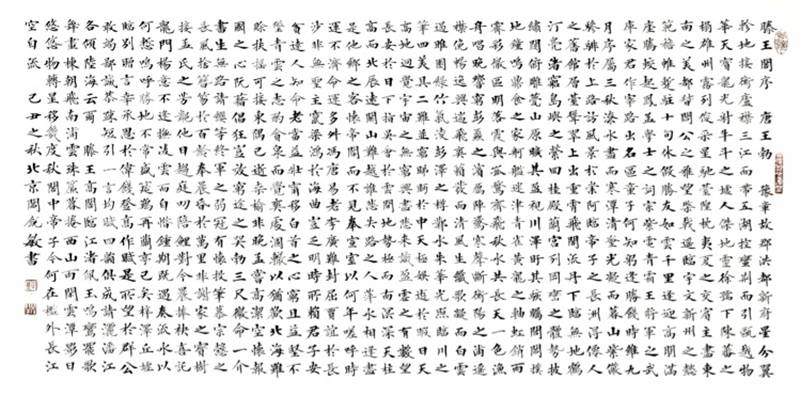 滕王閣序 唐 王勃 豫章故郡洪都新府星分翼
軫地接衡廬襟三江而帶五湖控蠻荊而引甌越物
華天寶龍光射牛斗之墟人傑地靈徐孺下陳蕃之
榻雄州霧列俊采星馳臺隍枕夷夏之交賓主盡東
南之美都督閻公之雅望棨戟遙臨宇文新州之懿
範襜帷暫駐十旬休暇勝友如雲千里逢迎高朋滿
座騰蛟起鳳孟學士之詞宗紫電青霜王將軍之武
庫家君作宰路出名區童子何知躬逢勝餞時維九
月序屬三秋潦水盡而寒潭清煙光凝而暮山紫儼
驂騑於上路訪風景於崇阿臨帝子之長洲得仙人
之舊館層臺聳翠上出重霄飛閣流丹下臨無地鶴
汀鳧渚窮島嶼之縈迴桂殿蘭宮列岡巒之體勢披
繡闥俯雕甍山原曠其盈視川澤盱其駭矚閭閻撲
地鐘鳴鼎食之家舸艦迷津青雀黃龍之軸虹銷雨
霽彩徹區明落霞與孤鶩齊飛秋水共長天一色漁
舟唱晚響窮彭蠡之濱雁陣驚寒聲斷衡陽之浦遙
襟俛暢逸興遄飛爽籟發而清風生纖歌凝而白雲
遏睢園綠竹氣凌彭澤之樽鄴水朱華光照臨川之
筆四美具二難并窮睇眄於中天極娛遊於暇日天
高地迥覺宇宙之無窮興盡悲來識盈虛之有數望
長安於日下指吳會於雲間地勢極而南溟深天柱
高而北辰遠關山難越誰悲失路之人萍水相逢盡
是他鄉之客懷帝閽而不見奉宣室以何年嗟呼時
運不濟命運多舛馮唐易老李廣難封屈賈誼於長
沙非無聖主竄梁鴻於海曲豈乏明時所賴君子安
貧達人知命老當益壯寧移白首之心窮且益堅不
墜青雲之志酌貪泉而覺爽處涸轍以猶歡北海雖
賒扶搖可接東隅已逝桑榆非晚孟嘗高潔空懷報
國之心阮籍猖狂豈效窮途之哭勃三尺微命一介
書生無路請纓等終軍之弱冠有懷投筆慕宗愨之
長風捨簪笏於百齡奉晨昏於萬里非謝家之寶樹
接孟氏之芳鄰他日趨庭叨陪鯉對今晨捧袂喜託
龍門楊意不逢撫凌雲而自惜鍾期既遇奏流水以
何慚嗚呼勝地不常盛筵難再蘭亭已矣梓澤丘墟
臨別贈言幸承恩於偉餞登高作賦是所望於群公
敢竭鄙誠恭疏短引一言均賦四韻俱成請灑潘江
各傾陸海云爾 滕王高閣臨江渚佩玉鳴鸞罷歌
舞畫棟朝飛南浦雲珠簾暮捲西山雨閒雲潭影日
悠悠物換星移幾度秋閣中帝子今何在檻外長江
空自流 己丑之秋北京閻銳敏書